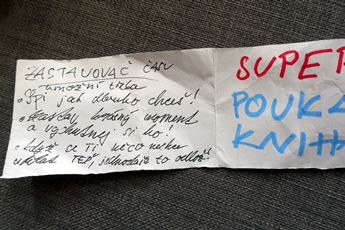 ZASTAVOVAČ ČASU
umožní třeba
• Spi jak dlouho chceš!
• Zastav krásný moment
a vychutnej si ho!
• Když se Ti něco nechce
udělat TEĎ, jednoduše to odlož!
SUPER
POUKA
KNIH